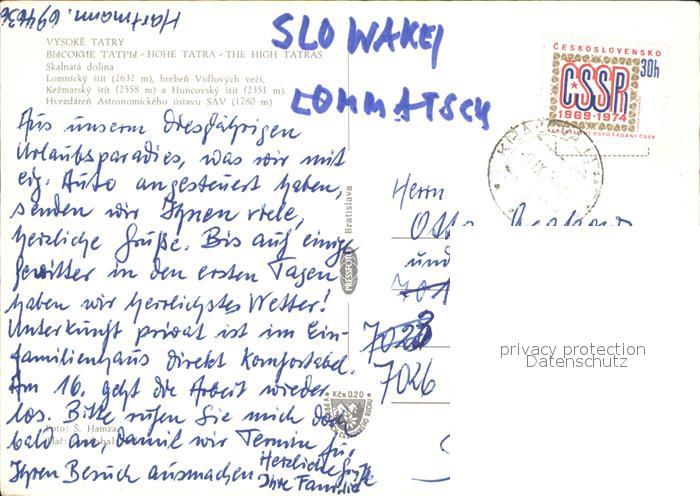 Hartmann. 694436
SLOWAKEI
LOMMATSCH
VYSOKÉ TATRY
ВЫСОКИЕ ТАТРЫ - HOHE TATRA - THE HIGH TATRAS
Skalnatá dolina
Lomnický štít (2632 m), hrebeň Vidlových veží,
Kežmarský štít (2558 m) a Huncovský štít (2351 m).
Hvezdáreň Astronomického ústavu SAV (1780 m)
Aus unserm diesjährigen
Urlaubsparadies, was wir mit
eig. Auto angesteuert haben,
senden wir Ihnen viele,
herzliche Grüße. Bis auf einige
Gewitter in den ersten Tagen
haben wir herrlichstes Wetter!
Unterkunft privat ist im Ein-
familienhaus direkt komfortabel.
Am 16. geht die Arbeit wieder
los. Bitte rufen Sie mich doch
bald an, damit wir Termin für
Ihren Besuch ausmachen
Herzliche Grüße
Ihre Familie
Foto: Š. Hamza
PRESSFOTO Bratislava
Kčs 0.20
ČESKOSLOVENSKO
30h
ČSSR
1969-1974
USPOŘÁDÁNÍ ČSSR
Herrn
Otto
und
7026
privacy protection
Datenschutz